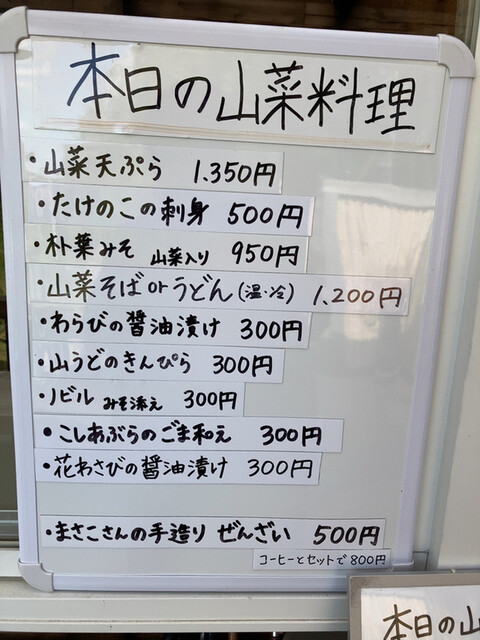 本日の山菜料理
・山菜天ぷら 1.350円
・たけのこの刺身 500円
・朴葉みそ 山菜入り 950円
・山菜そばorうどん(温・冷) 1,200円
・わらびの醤油漬け 300円
・山うどのきんぴら 300円
・ノビル みそ添え 300円
・こしあぶらのごま和え 300円
・花わさびの醤油漬け 300円
・まさこさんの手造り ぜんざい 500円
コーヒーとセットで800円
本日の山